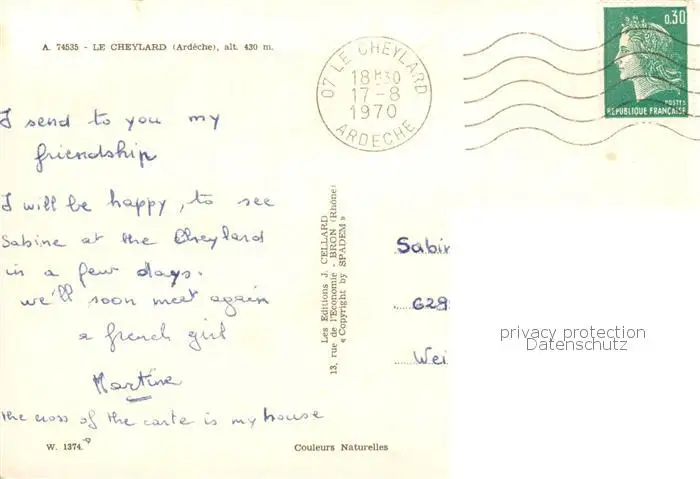 A. 74535 - LE CHEYLARD (Ardèche), alt. 430 m.
07 LE CHEYLARD
18H30
17-8
1970
ARDECHE
0,30
POSTES
REPUBLIQUE FRANÇAISE
I send to you my
friendship
I will be happy, to see
Sabine at the Cheylard
in a few days.
we'll soon meet again
a french girl
Martine
the cross of the carte is my house
W. 1374.
Couleurs Naturelles
Les Editions J. CELLARD
13, rue de l'Economie - BRON (Rhône)
« Copyright by SPADEM »
Sabin
629
Wei
privacy protection
Datenschutz